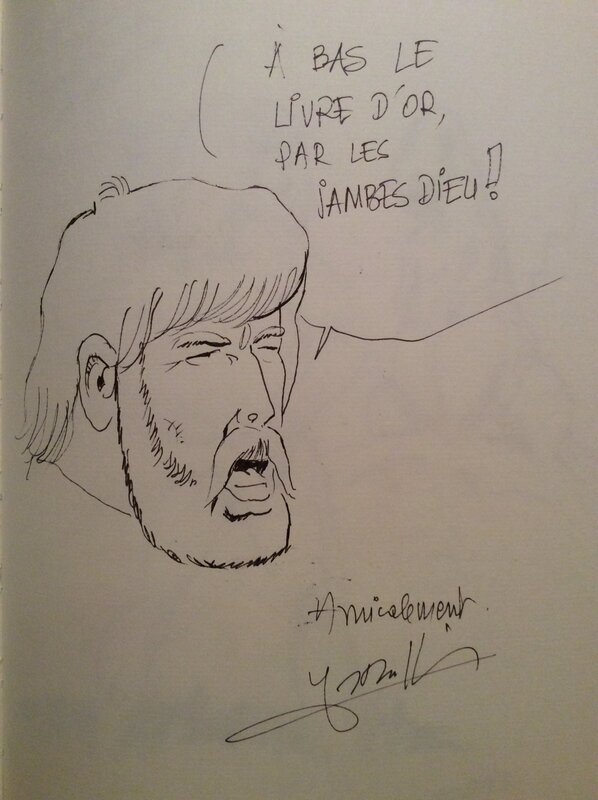 À BAS LE
LIVRE D'OR,
PAR LES
JAMBES DIEU !
Amicalement.